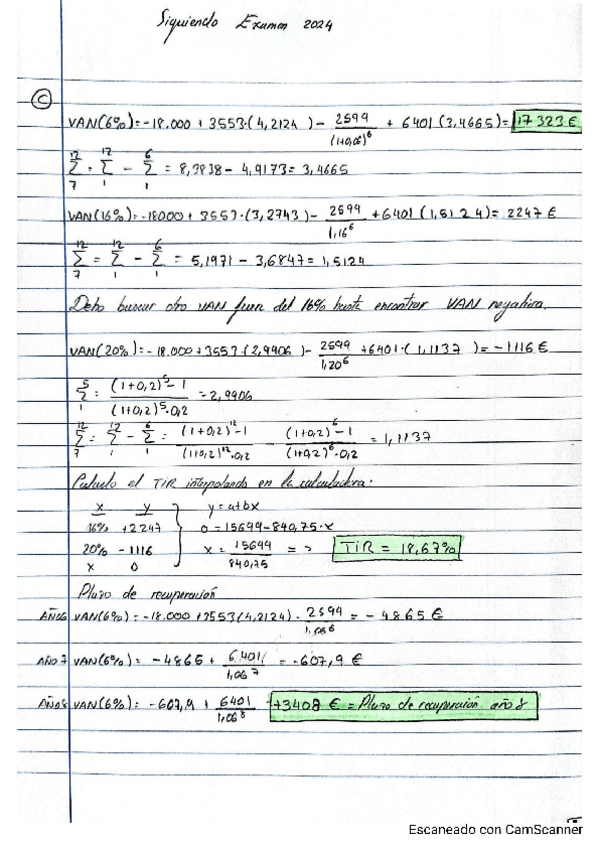 Siguiendo Examen 2024
C
VAN(6%)=-18.000 + 3553·(4,2124) - 2599/(1+0,06)^6 + 6401(3,4665)= 17323 €
12∑7 = 12∑1 - 6∑1 = 8,3838 - 4,9173 = 3,4665
VAN(16%)=-18000 + 3553·(3,2743) - 2599/1,16^6 + 6401(1,5124) = 2247 €
12∑7 = 12∑1 - 6∑1 = 5,1971 - 3,6847 = 1,5124
Debo buscar otro VAN fuera del 16% hasta encontrar VAN negativa.
VAN(20%)=-18.000 + 3553·(2,9906) - 2599/1,20^6 + 6401·(1,1137) = -1116 €
5∑1 = (1+0,2)^5-1/(1+0,2)^5·0,2 = 2,9906
12∑7 = 12∑1 - 6∑1 = (1+0,2)^12-1/(1+0,2)^12·0,2 - (1+0,2)^6-1/(1+0,2)^6·0,2 = 1,1137
Calculo el TIR interpolando en la calculadora.
x y y=a+bx
16% +2247 0 = 15699-840,75·x
20% -1116 x = 15699/840,75 => TIR = 18,67%
x 0
Plazo de recuperación
AÑO6 VAN(6%)=-18.000 + 3553(4,2124) - 2599/1,06^6 = -4865 €
AÑO 7 VAN(6%)= -4865 + 6.401/1,06^7 = -607,9 €
AÑO8 VAN(6%)= -607,9 + 6401/1,06^8 = +3408 € = Plazo de recuperación año 8
Escaneado con CamScanner